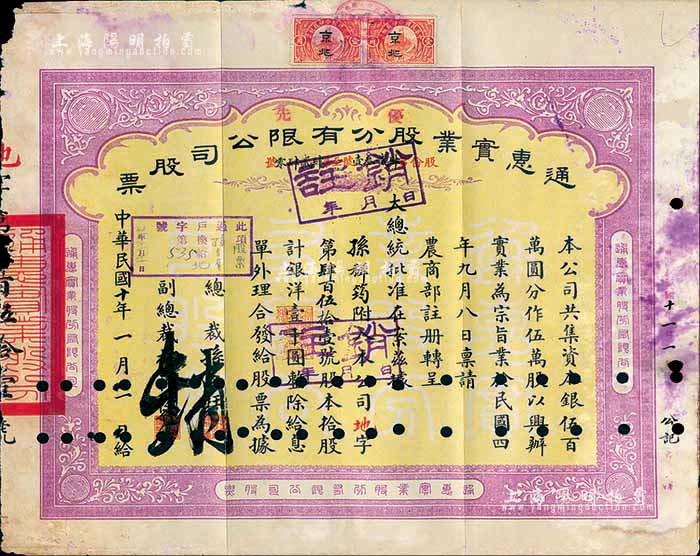 上海陽明拍賣
www.yangmingauction.com
京兆
京兆
優先
通惠實業股分有限公司股票
註銷
年月日
本公司共集資本銀伍百
萬圓分作伍萬股以興辦
實業為宗旨業於民國四
年九月八日稟請
農商部註册轉呈
大總統批准在案茲據
孫禪筠附入本公司地字
第肆百伍拾壹號股本拾股
計銀洋壹千圓整除給息
單外理合發給股票為據
總裁孫
副總裁
中華民國十年一月一日給
此項股票
戶換給地
字第535
號
註銷
年月日
地字第
百伍拾壹號
十一
公記
通惠實業股份有限公司股票
上海陽明拍賣
www.yangmingauction.com